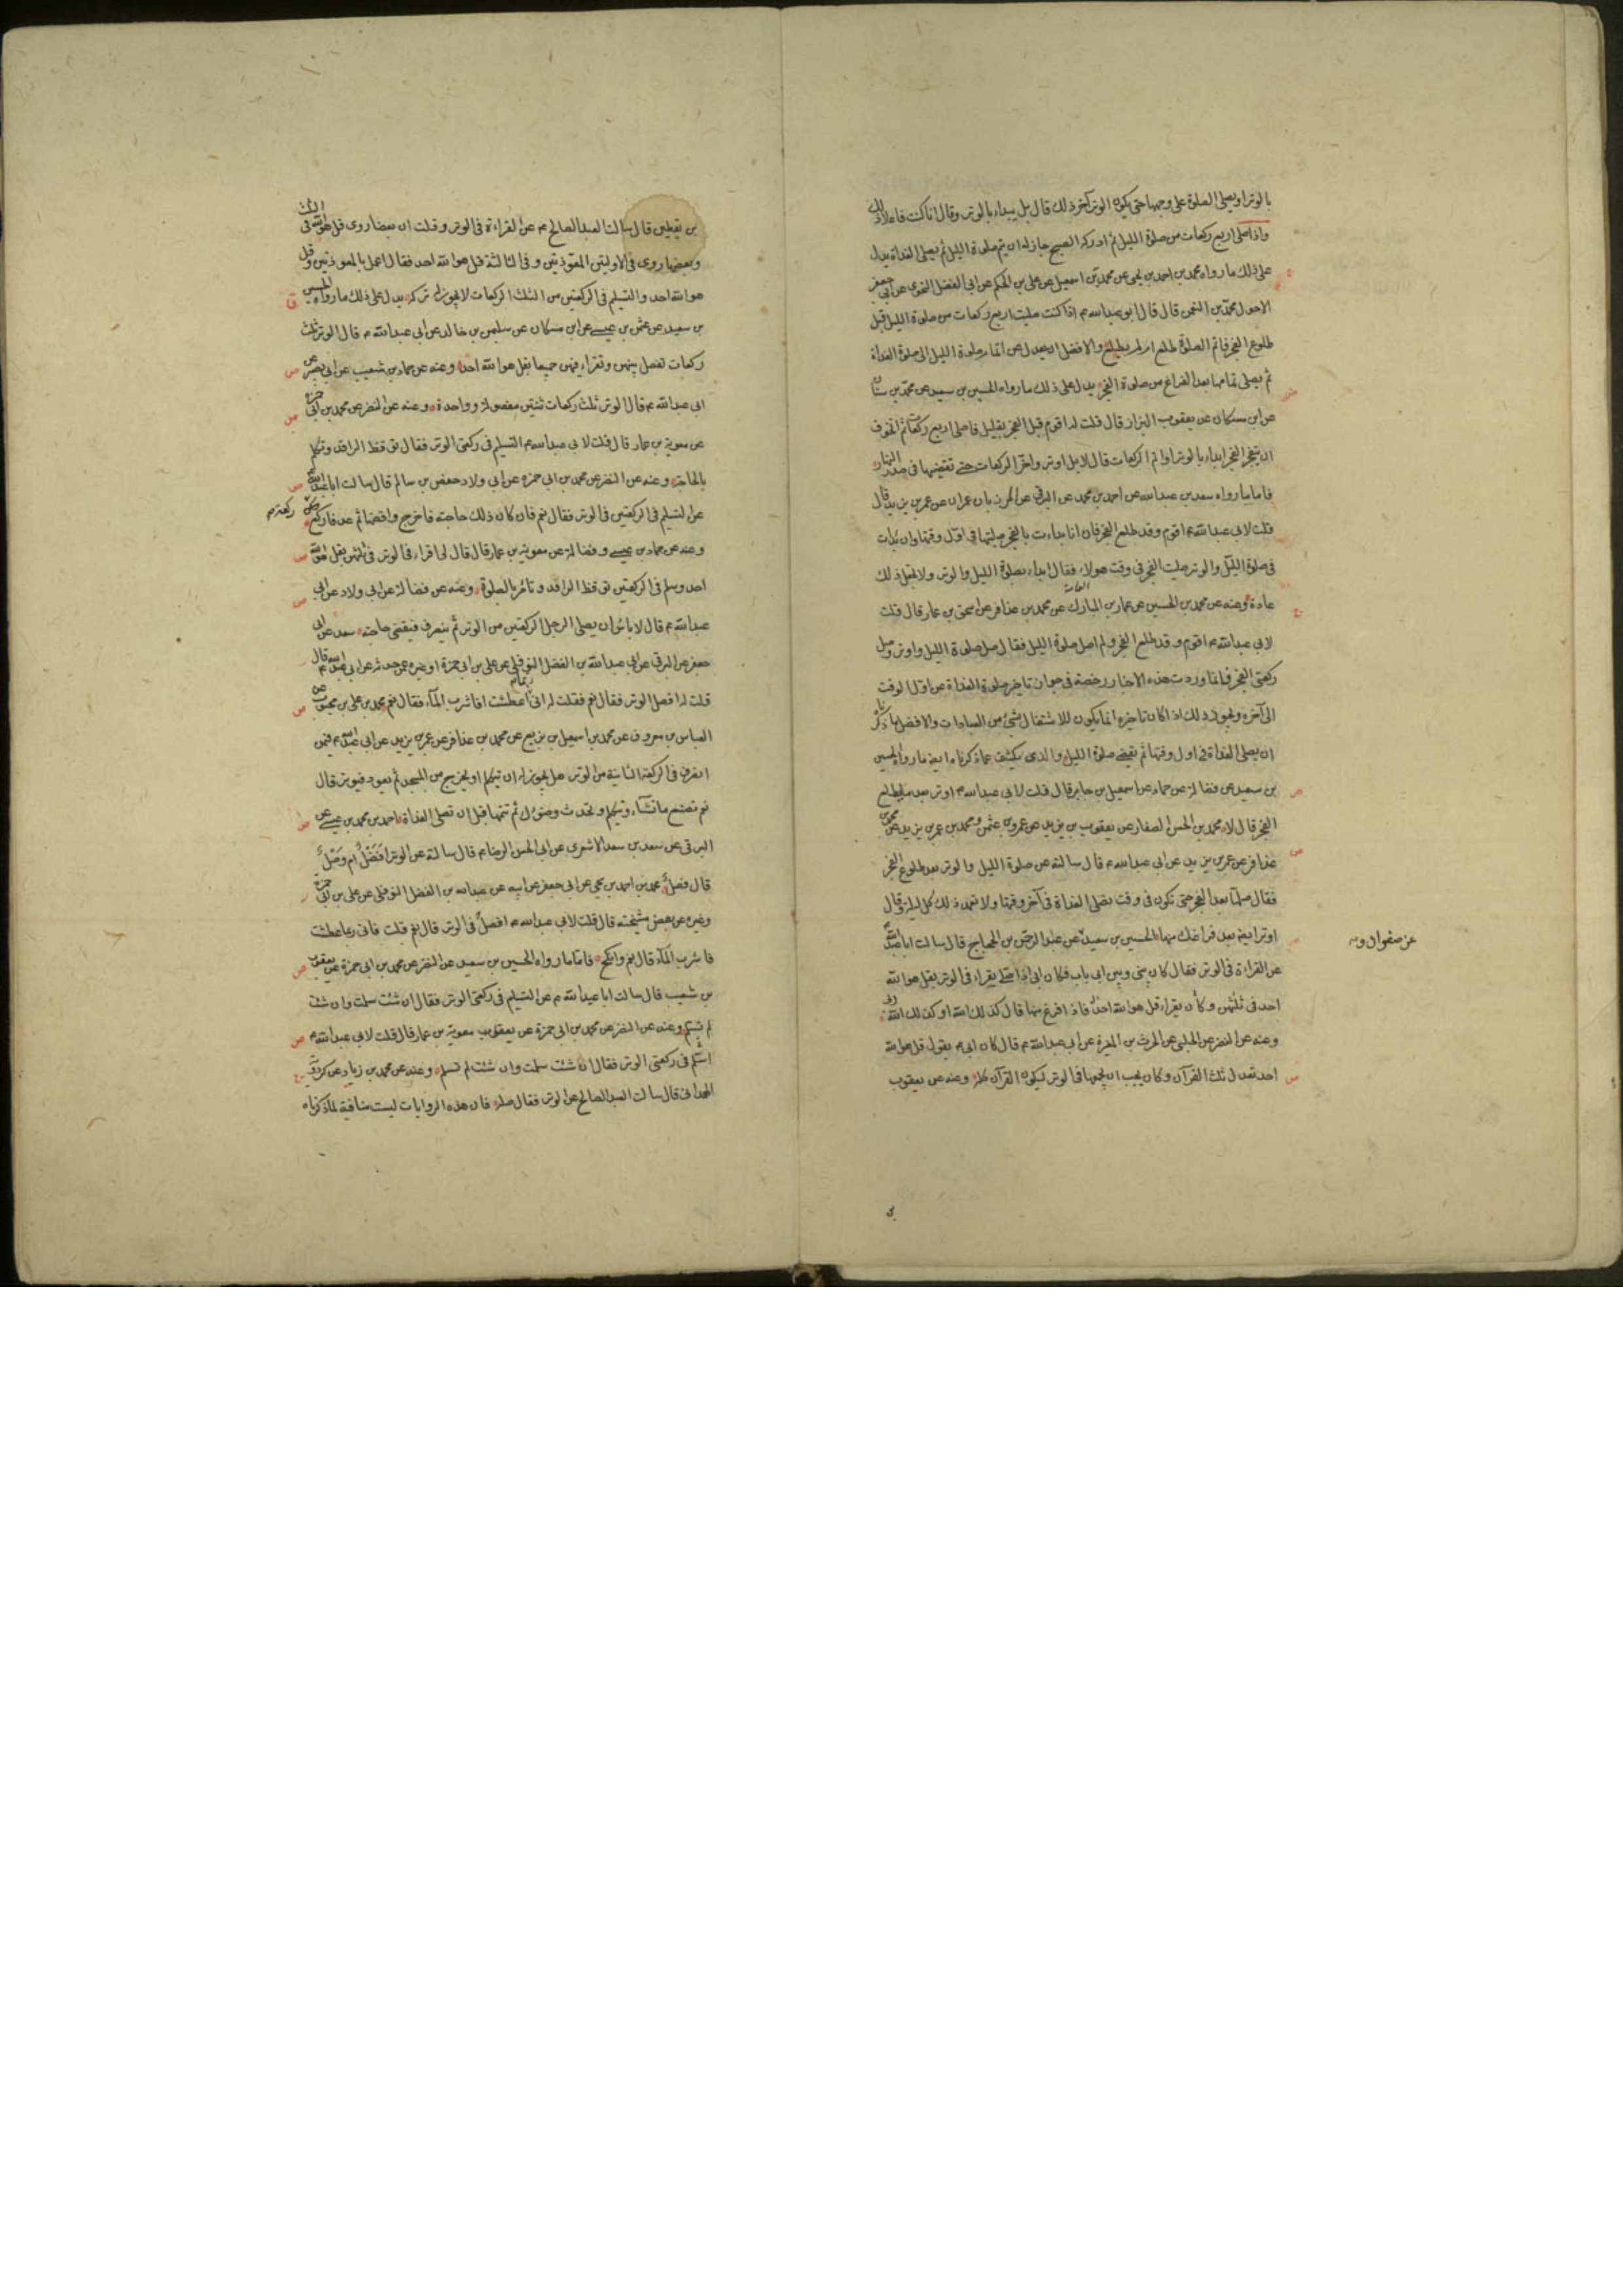 بالوتر او يصلى الصلوة على وجهها حتى يكون الوتر آخر ذلك قال بل يبداء بالوتر وقال انا كنت فاعلا ذلك
واذا صلى اربع ركعات من صلوة الليل ثم ادركه الصبح جاز له ان يتم صلوة الليل ثم يصلى الغداة يدل
على ذلك ما رواه محمد بن احمد بن يحيى عن محمد بن اسمعيل عن على بن الحكم عن ابى الفضل النحوى عن ابى جعفر
الاحول محمد بن النعمن قال قال ابو عبد الله م اذا كنت صليت اربع ركعات من صلوة الليل قبل
طلوع الفجر فاتم الصلوة طلع ام لم يطلع والافضل ان يعدل عن اتمام صلوة الليل الى صلوة الغداة
ثم يصلى تمامها بعد الفراغ من صلوة الفجر يدل على ذلك ما رواه الحسين بن سعيد عن محمد بن سنان
عن ابن مسكان عن يعقوب البزاز قال قلت له اقوم قبل الفجر بقليل فاصلى اربع ركعات ثم اتخوف
ان ينفجر الفجر ابداء بالوتر او اتم الركعات قال لا بل اوتر واخر الركعات حتى تقضيها فى صدر النهار
فاما ما رواه سعد بن عبد الله عن احمد بن محمد عن البرقى عن المرزبان بن عمران عن عمر بن يزيد قال
قلت لابى عبد الله م اقوم وقد طلع الفجر فان انا بداءت بالفجر صليتها فى اول وقتها وان بدات
فى صلوة الليل والوتر صليت الفجر فى وقت هولاء فقال ابداء بصلوة الليل والوتر ولا تجعل ذلك
عادة وعنه عن محمد بن الحسين عن عمار بن المبارك عن محمد بن عذافر عن اسحق بن عمار قال قلت
لابى عبد الله م اقوم وقد طلع الفجر ولم اصل صلوة الليل فقال صل صلوة الليل واوتر وصل
ركعتى الفجر فانما وردت هذه الاخبار رخصة فى جواز تاخير صلوة الغداة من اول الوقت
الى آخره ويجوز ذلك اذا كان تاخيره انما يكون للاشتغال بشئ من العبادات والافضل ما ذكرنا
ان يصلى الغداة فى اول وقتها ثم يقضى صلوة الليل والذى يكشف عما ذكرناه ايضا ما رواه الحسين
بن سعيد عن فضالة عن حماد عن اسمعيل بن جابر قال قلت لابى عبد الله م اوتر بعد ما يطلع
الفجر قال لا محمد بن الحسن الصفار عن يعقوب بن يزيد عن عمرو بن عثمن ومحمد بن عمر بن يزيد عن محمد بن
عذافر عن عمر بن يزيد عن ابى عبد الله م قال سالته عن صلوة الليل والوتر بعد طلوع الفجر
فقال صلها بعد الفجر حتى تكون فى وقت تصلى الغداة فى آخر وقتها ولا تعمد ذلك كل ليلة وقال
اوتر ايضا بعد فراغك منها الحسين بن سعيد عن عبد الرحمن بن الحجاج قال سالت ابا عبد الله
عن صفوان
عن القراءة فى الوتر فقال كان بينى وبين ابى باب فكان ابى اذا صلى يقراء فى الوتر بقل هو الله
احد فى ثلثهن وكان يقراء قل هو الله احد فاذا فرغ منها قال كذلك الله او كذلك الله ربى
وعنه عن النضر عن الحلبى عن الحرث بن المغيرة عن ابى عبد الله م قال كان ابى م يقول قل هو الله
احد تعدل ثلث القرآن وكان يحب ان يجمعها فى الوتر ليكون القرآن كله وعنه عن يعقوب
بن يقطين قال سالت العبد الصالح م عن القراءة فى الوتر وقلت ان بعضا روى قل هو الله فى الثلث
وبعضها روى فى الاوليين المعوذتين وفى الثالثة قل هو الله احد فقال اعمل بالمعوذتين وقل
هو الله احد والتسليم فى الركعتين من الثلث الركعات لا يجوز تركه يدل على ذلك ما رواه الحسين
بن سعيد عن عثمن بن عيسى عن ابن مسكان عن سليمن بن خالد عن ابى عبد الله م قال الوتر ثلث
ركعات تفصل بينهن وتقراء فيهن جميعا بقل هو الله احد وعنه عن حماد بن شعيب عن ابى بصير عن
ابى عبد الله م قال الوتر ثلث ركعات ثنتين مفصولة وواحدة وعنه عن النضر عن محمد بن ابى حمزة
عن معوية بن عمار قال قلت لابى عبد الله م التسليم فى ركعتى الوتر فقال توقظ الراقد وتكلم
بالحاجة وعنه عن النضر عن محمد بن ابى حمزة عن ابى ولاد حفص بن سالم قال سالت ابا عبد الله
عن التسليم فى الركعتين فى الوتر فقال نعم فان كان ذلك حاجة فاخرج واقضها ثم عد فاركع ركعة م
وعنه عن حماد بن عيسى وفضالة عن معوية بن عمار قال قال لى اقراء فى الوتر فى ثلثهن بقل هو الله
احد وسلم فى الركعتين توقظ الراقد وتامر بالصلوة وعنه عن فضالة عن ابى ولاد عن ابى
عبد الله م قال لا باس ان يصلى الرجل الركعتين من الوتر ثم ينصرف فيقضى حاجته سعد عن ابى
جعفر عن البرقى عن ابى عبد الله بن الفضل النوفلى عن على بن ابى حمزة او غيره عمن حدثه عن ابى عبد الله م قال
قلت له افصل الوتر فقال نعم فقلت له انى ربما اعطشت افاشرب الماء فقال نعم محمد بن على بن محبوب عن
العباس بن معروف عن محمد بن اسمعيل بن بزيع عن محمد بن عذافر عن عمر بن يزيد عن ابى عبد الله م فيمن
انصرف فى الركعة الثانية من الوتر هل يجوز له ان يتكلم او يخرج من المسجد ثم يعود فيوتر قال
نعم تصنع ما تشاء وتتكلم وتحدث وضوءك ثم تتمها قبل ان تصلى الغداة احمد بن محمد بن عيسى عن
البرقى عن سعد بن سعد الاشعرى عن ابى الحسن الرضا م قال سالته عن الوتر افصل ام وصل
قال فصل محمد بن احمد بن يحيى عن ابى جعفر عن ابيه عن عبد الله بن الفضل النوفلى عن على بن ابى حمزة
وغيره عن بعض مشيخته قال قلت لابى عبد الله م افصل فى الوتر قال نعم قلت فانى ربما عطشت
فاشرب الماء قال نعم وانكح فاما ما رواه الحسين بن سعيد عن النضر عن محمد بن ابى حمزة عن يعقوب
بن شعيب قال سالت ابا عبد الله م عن التسليم فى ركعتى الوتر فقال ان شئت سلمت وان شئت
لم تسلم وعنه عن النضر عن محمد بن ابى حمزة عن يعقوب معوية بن عمار قال قلت لابى عبد الله م
اسلم فى ركعتى الوتر فقال ان شئت سلمت وان شئت لم تسلم وعنه عن محمد بن زياد عن كردويه
الهمدانى قال سالت العبد الصالح عن الوتر فقال صله فان هذه الروايات ليست منافية لما ذكرناه